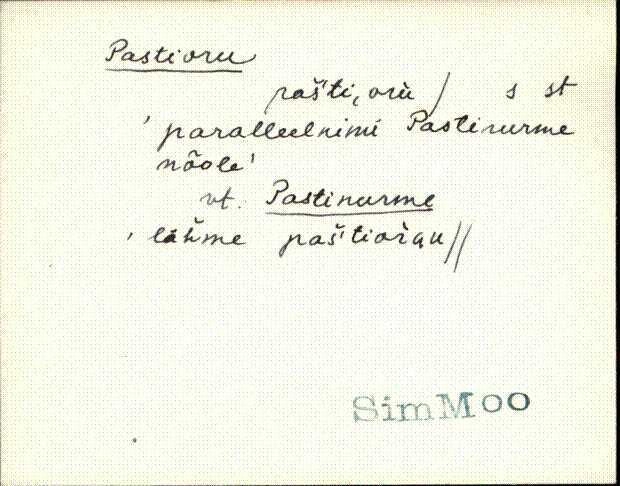 Pastioru
paš'ti,orù / s st
'paralleelnimi Pastinurme
nõole'
vt. Pastinurme
, lähme paš'tiořgu //
SimMoo